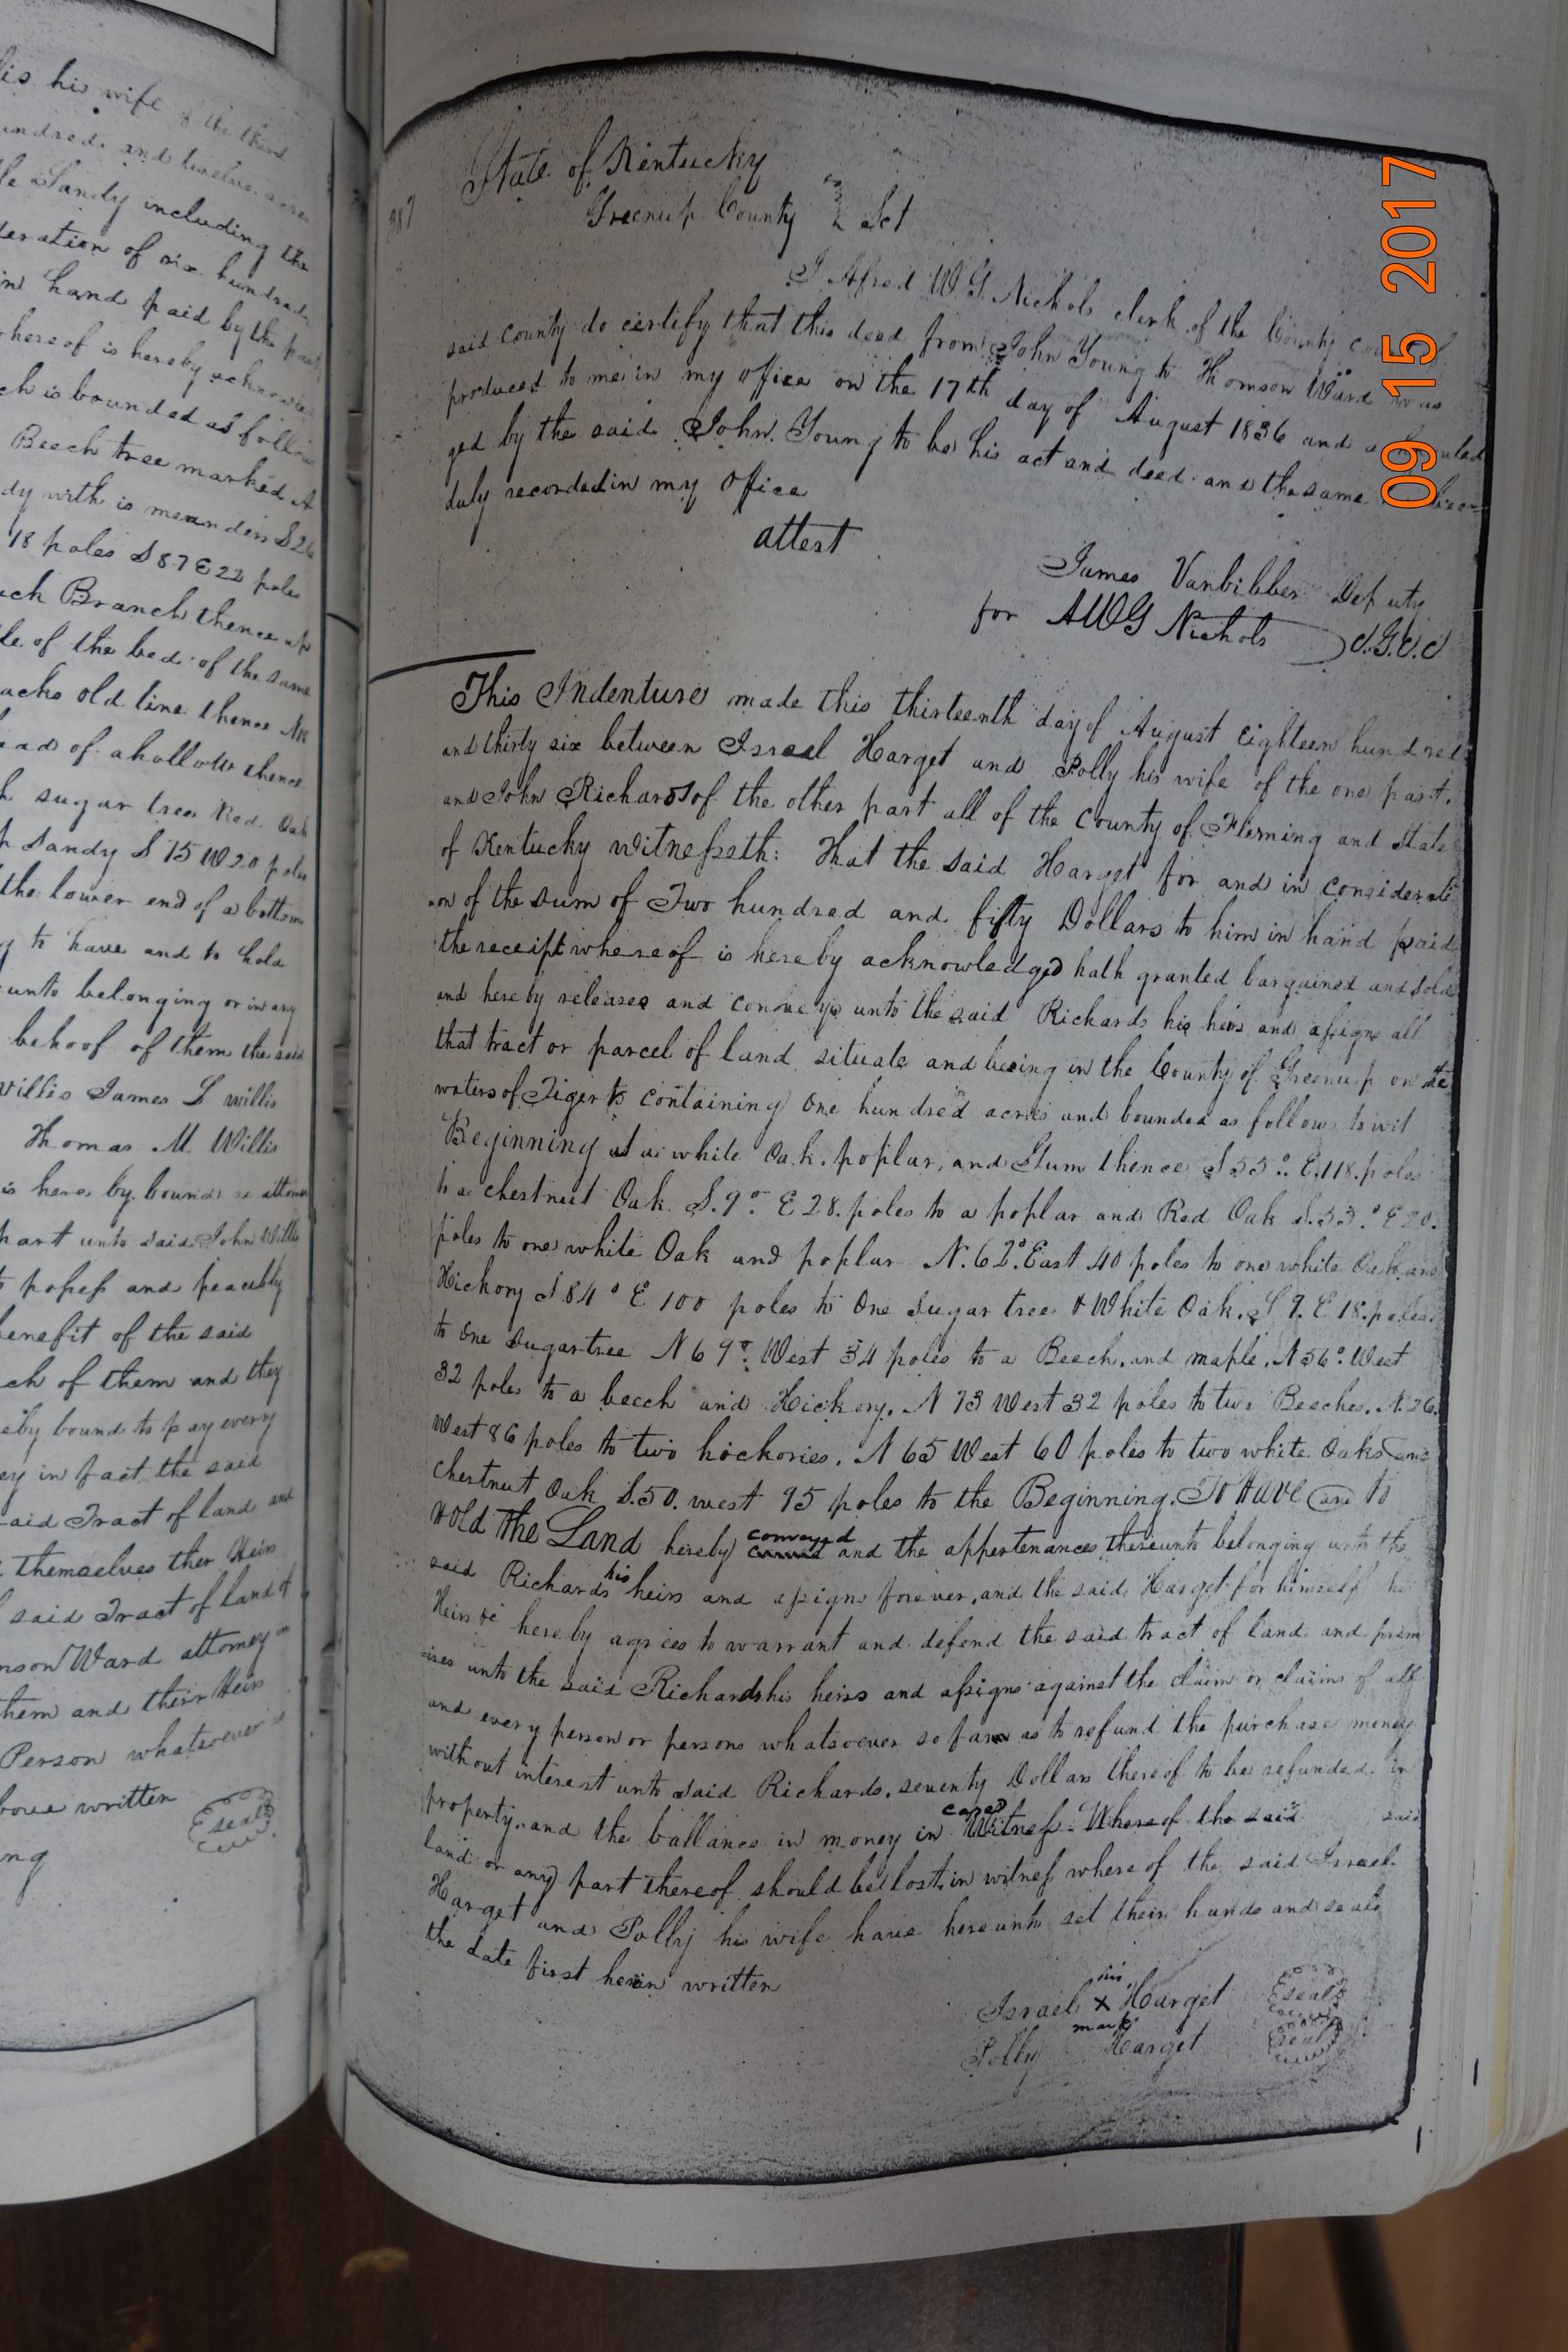 his wife of the third
hundred and twelve acres
Sandy including the
of six hundred
in hand paid by the
hereof is hereby
is bounded as follow
Beech tree marked A
with is meanders S 26
18 poles S 87 E 22 poles
Branch thence up
of the bed of the same
old line thence
of a hollow thence
sugar tree Red Oak
Sandy S 15 W 20 poles
the lower end of a bottom
to have and to hold
unto belonging or in any
behoof of them the said
Willis James L Willis
Thomas M Willis
is here by bound
part unto said John Willis
possess and peacably
benefit of the said
of them and they
bound to pay every
in fact the said
said Tract of land and
themselves ther Heirs
said Tract of land
Ward attorney in
them and their Heirs
Person whatsoever
above written
Seal
State of Kentucky
Greenup County Sct
I Alfred W G Nichols clerk of the County
said county do certify that this deed from John Young to Thomson Ward was
produced to me in my office on the 17th day of August 1836 and
ged by the said John Young to be his act and deed and the same been
duly recorded in my office
attest
James Vanbibber Deputy
for AWG Nichols C.G.C.C
This Indenture made this thirteenth day of August Eighteen hundred
and thirty six between Israel Harget and Polly his wife of the one part.
and John Richards of the other part all of the County of Fleming and State
of Kentucky Witnesseth: That the said Harget for and in considerati
on of the sum of Two hundred and fifty Dollars to him in hand paid
the receipt whereof is hereby acknowledged hath granted bargained and sold
and hereby releases and conveys unto the said Richards his heirs and assigns all
that tract or parcel of land situate and being in the County of Greenup on the
waters of Tigerts containing One hundred acres and bounded as follows to wit
Beginning at a white Oak, poplar, and Gum thence S 55° E. 118. poles
to a chestnut Oak S. 9° E 28. poles to a poplar and Red Oak S. 33.° E 20.
poles to one white Oak and poplar N. 62° East 40 poles to one white Oak and
Hickory S 84° E 100 poles to One Sugar tree & White Oak. S 9. E 18. poles
to One Sugar tree N 69° West 34 poles to a Beech, and maple. N 56° West
32 poles to a beech and Hickory. N 73 West 32 poles to two Beeches. N. 26.
West 86 poles to two hockories. N 65 West 60 poles to two white Oaks and
chestnut Oak S. 50. west 95 poles to the Beginning. To Have and to
Hold The Land hereby conveyed and the appertenances thereunto belonging unto the
said Richards his heirs and assigns forever, and the said Harget for himself his
Heirs &c hereby agrees to warrant and defend the said tract of land and prem
ises unto the said Richards his heirs and assigns against the claim or claims of all
and every person or persons whatsoever so far as to refund the purchase money
without interest unto said Richards. seventy Dollars thereof to be refunded in
property, and the ballance in money in case Witness Whereof the said said
land or any part thereof should be lost, in witness where of the said Israel
Harget and Polly his wife have hereunto set their hands and seals
the date first herein written
his
Israel x Harget Seal
mark
Polly Harget Seal
09 15 2017